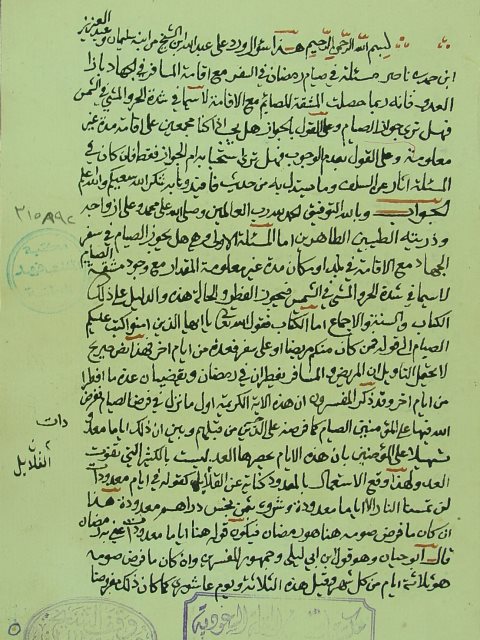 بسم الله الرحمن الرحيم هذا سؤال ورد على عبد الله ابن الشيخ من ابنه سليمان وعبد العزيز
ابن حمد بن ناصر مسئلة في صيام رمضان في السفر مع اقامة المسافر في الجهاد بازا
العدو فانه ربما حصلت المشقة للصايم مع الاقامة لاسيما في شدة الحر والمشي في الشمس
فهل ترى جواز الصيام وعلى القول بالجواز هل يجزي اذا كنا مجمعين على اقامة مدة غير
معلومة وعلى القول بعدم الوجوب فهل ترى استحبابه ام الجواز فقط فان كان في
المسئلة اثار عن السلف وما يستدل به من حديث فافيدونا به شكر الله سعيكم والله اعلم
الجواب وبالله التوفيق الحمد لله رب العالمين وصلى الله على محمد وعلى ازواجه
وذريته الطيبين الطاهرين اما المسئلة الاولى وهي هل يجوز الصيام في سفر
الجهاد مع الاقامة في بلد او مكان مدة غير معلومة المقدار مع وجود مشقة الصيام
لاسيما في شدة الحر والمشي في الشمس فيجوز الفطر والحالة هذه والدليل على ذلك
الكتاب والسنة والاجماع اما الكتاب فقول الله تعالى يا ايها الذين امنوا كتب عليكم
الصيام الى قوله فمن كان منكم مريضا او على سفر فعدة من ايام اخر فهذا نص صريح
لا يحتمل التاويل ان المريض والمسافر يفطران في رمضان ويقضيان عدة ما افطرا
من ايام اخر وقد ذكر المفسرون ان هذه الاية الكريمة اول ما نزل في فرض الصيام ففرض
الله فيها على المؤمنين الصيام كما فرضه على الذين من قبلهم وبين ان ذلك اياما معدودات
تسهيلا على المؤمنين بان هذه الايام يحصرها العد ليست بالكثير التي تفوت
العد ولهذا وقع الاستعمال بالمعدود كناية عن القلائل كقوله في ايام معدودات
لن تمسنا النار الا اياما معدودة وشروه بثمن بخس دراهم معدودة هذا
ان كان ما فرض صومه هنا هو رمضان فيكون قوله هنا اياما معدودات عني به رمضان
قال ابو حيان وهو قول ابن ابي ليلى وجمهور المفسرين وان كان ما فرض صومه
هو ثلاثة ايام من كل شهر وقيل هذه الثلاثة ويوم عاشورا كما كان ذلك مفروضا
دات
القلايل